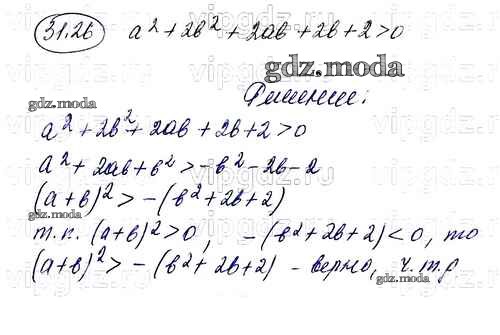 31.26 a² + 2b² + 2ab + 2b + 2 > 0
gdz.moda
Решение:
gdz.moda
a² + 2b² + 2ab + 2b + 2 > 0
a² + 2ab + b² > -b² - 2b - 2
(a+b)² > -(b² + 2b + 2)
gdz.moda
т.к. (a+b)² > 0, -(b² + 2b + 2) < 0, то
(a+b)² > -(b² + 2b + 2) - верно, ч.т.д
gdz.moda